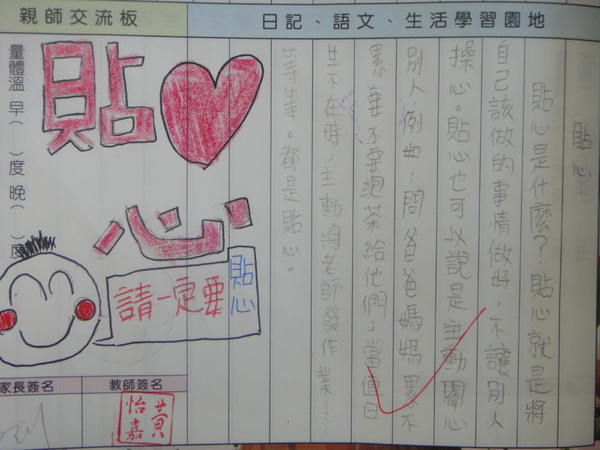 親師交流板
日記、語文、生活學習園地
貼心
貼心是什麼？貼心就是將
自己該做的事情做好，不讓別人
操心。貼心也可以說是主動關心
別人，例如：問爸爸媽媽累不
累，要不要泡茶給他們；當值日
生不在時，主動將老師發作業……
等等。都是貼心。
貼心
請一定要貼心
量體溫 早（ ）度 晚（ ）度
家長簽名
教師簽名
黃怡嘉